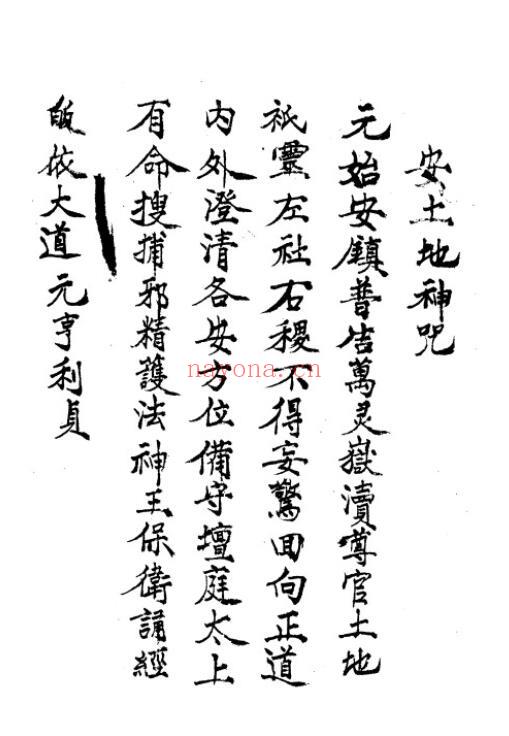 安土地神咒
元始安鎮普告萬灵嶽瀆尊官土地
祇靈左社右稷不得妄驚回向正道
内外澄清各安方位備守壇庭太上
有命搜捕邪精護法神王保衛誦經
皈依大道元亨利貞
nayona.cn